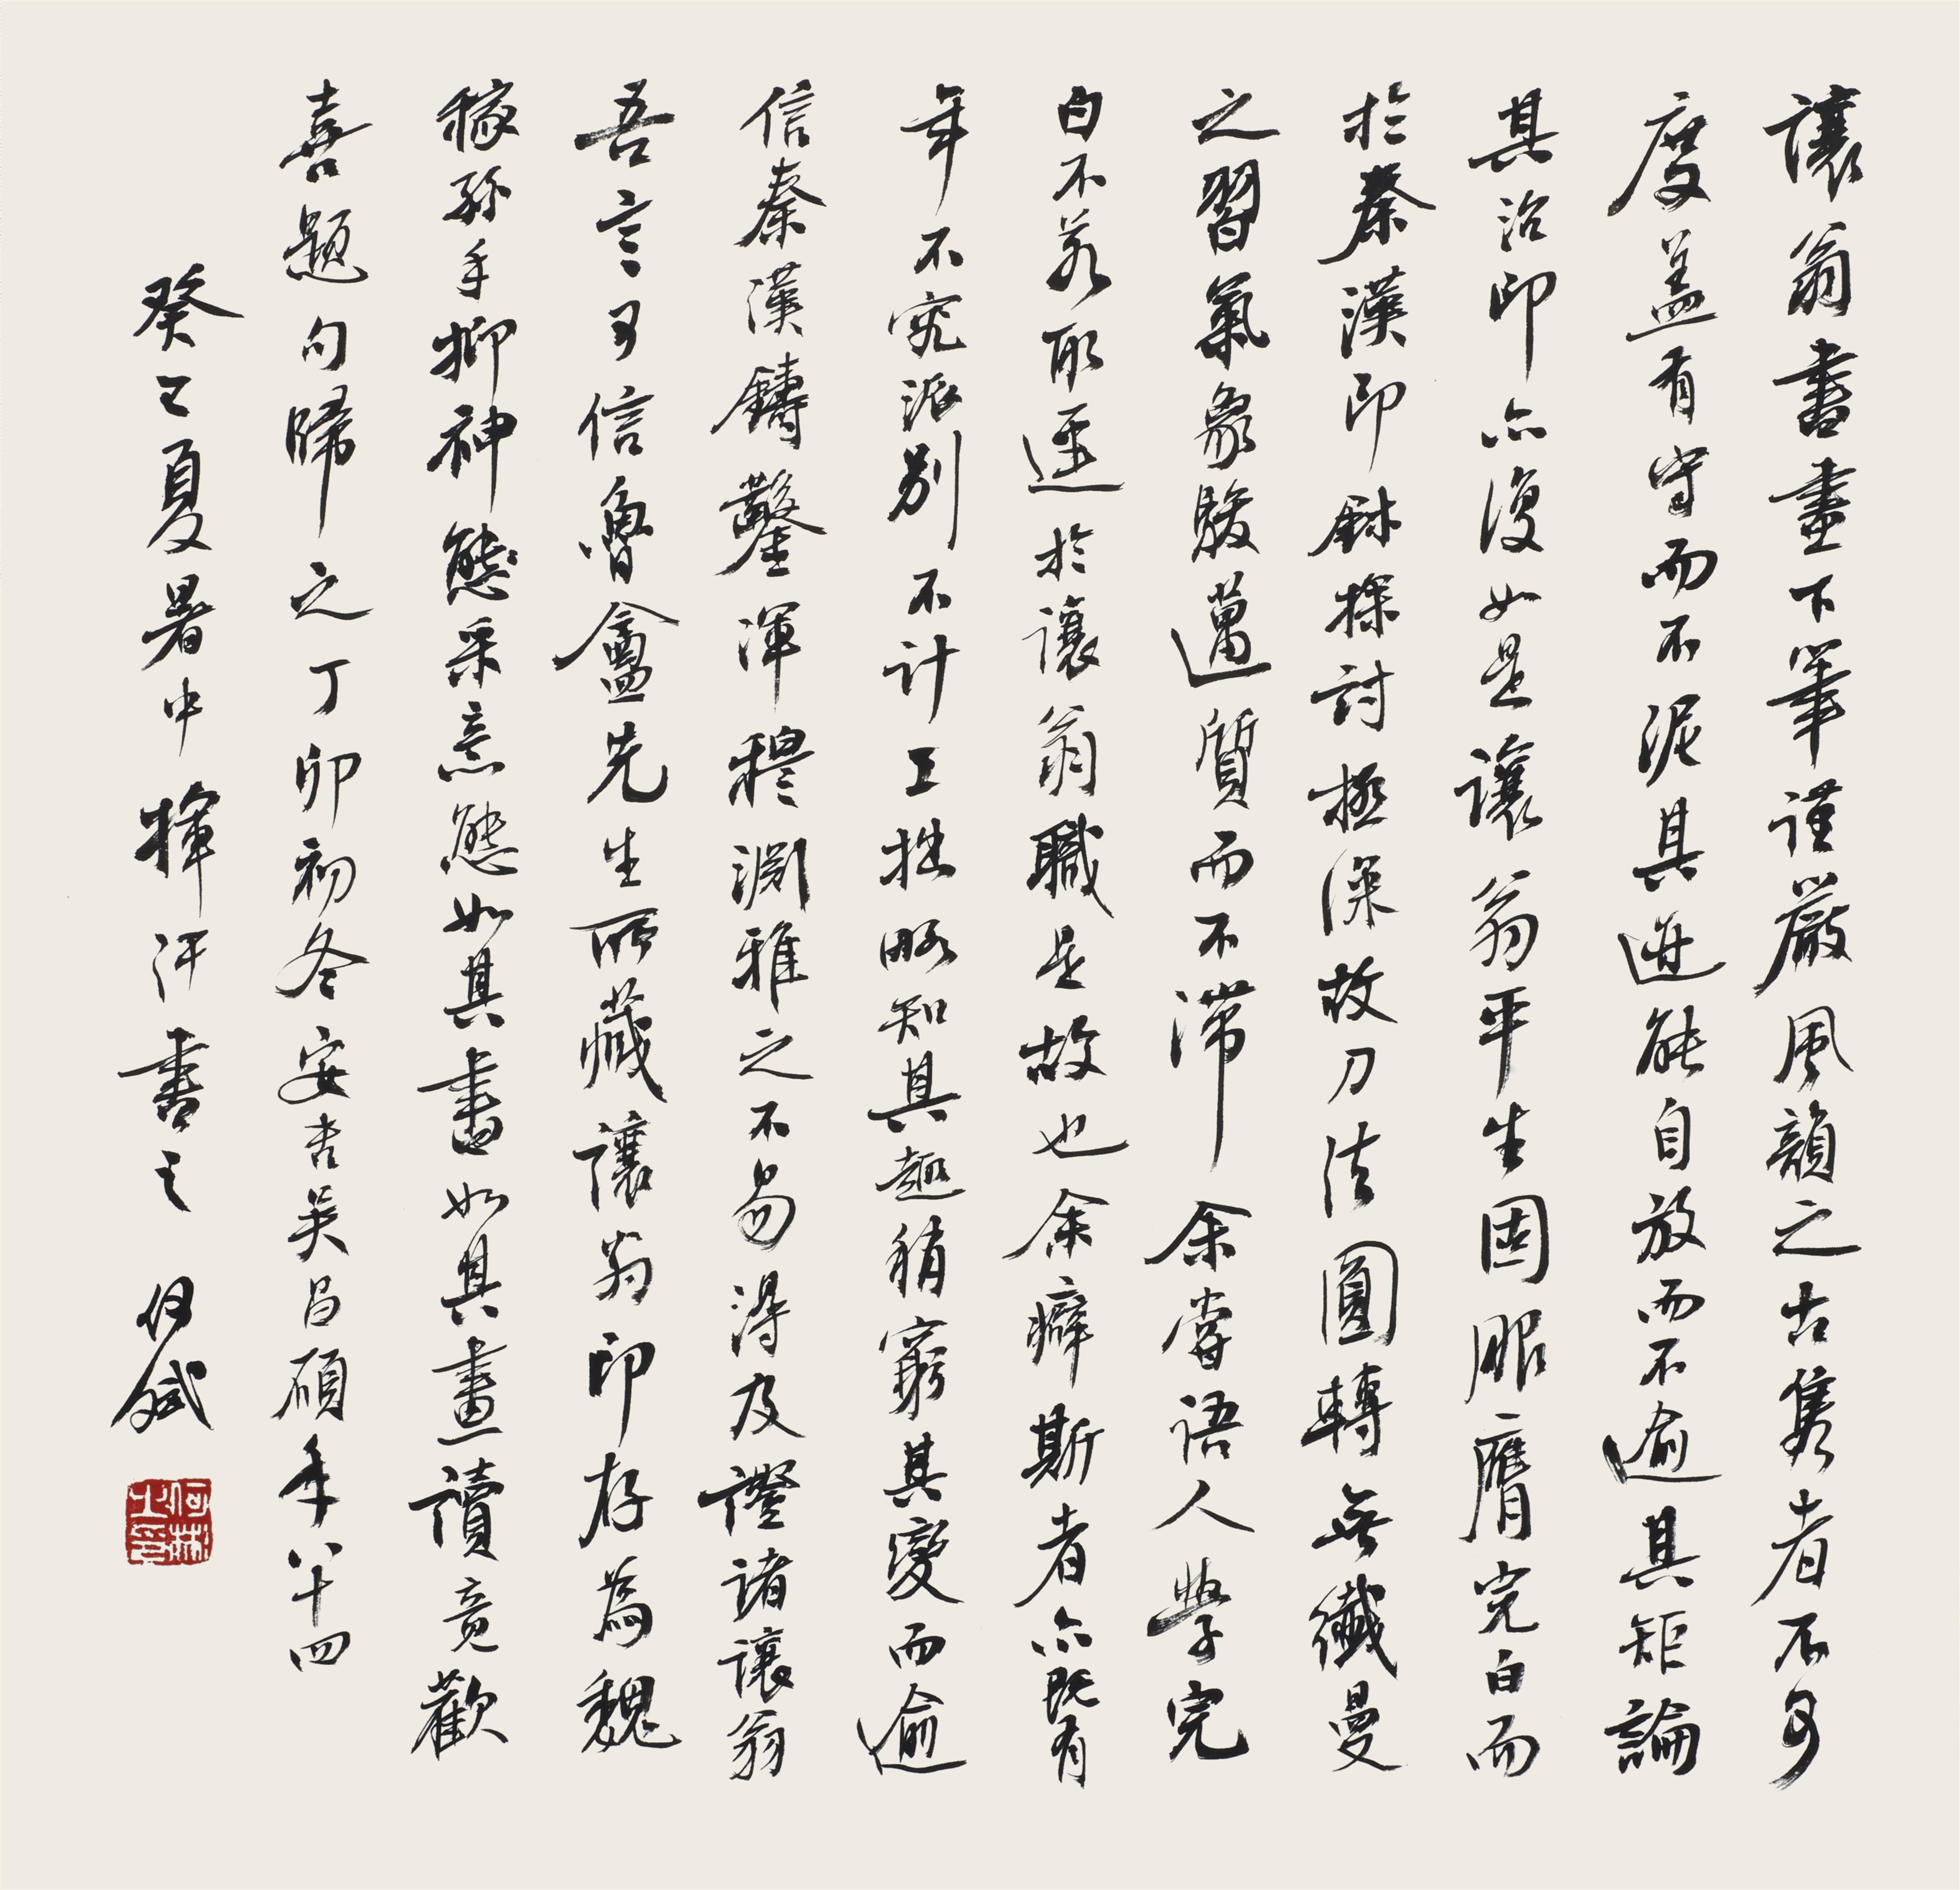 讓翁書畫下筆謹嚴風韻之古雋者不可
度蓋有守而不泥其迹能自放而不逾其矩論
其治印亦復如是讓翁平生固服膺完白而
於秦漢印鉨探討極深故刀法圓轉無纖曼
之習氣象駿邁質而不滯余嘗語人學完
白不若取逕於讓翁職是故也余癖斯者亦既有
年不究派別不計工拙略知其趣稍窮其變而逾
信秦漢鑄鑿渾穆淵雅之不易得及證諸讓翁
吾言可信魯盦先生所藏讓翁印存為魏
稼孫手抑神態采烝態如其書如其畫讀竟歡
喜題句歸之丁卯初冬安吉吳昌碩年八十四
癸巳夏暑中揮汗書之 何斌
何斌之印